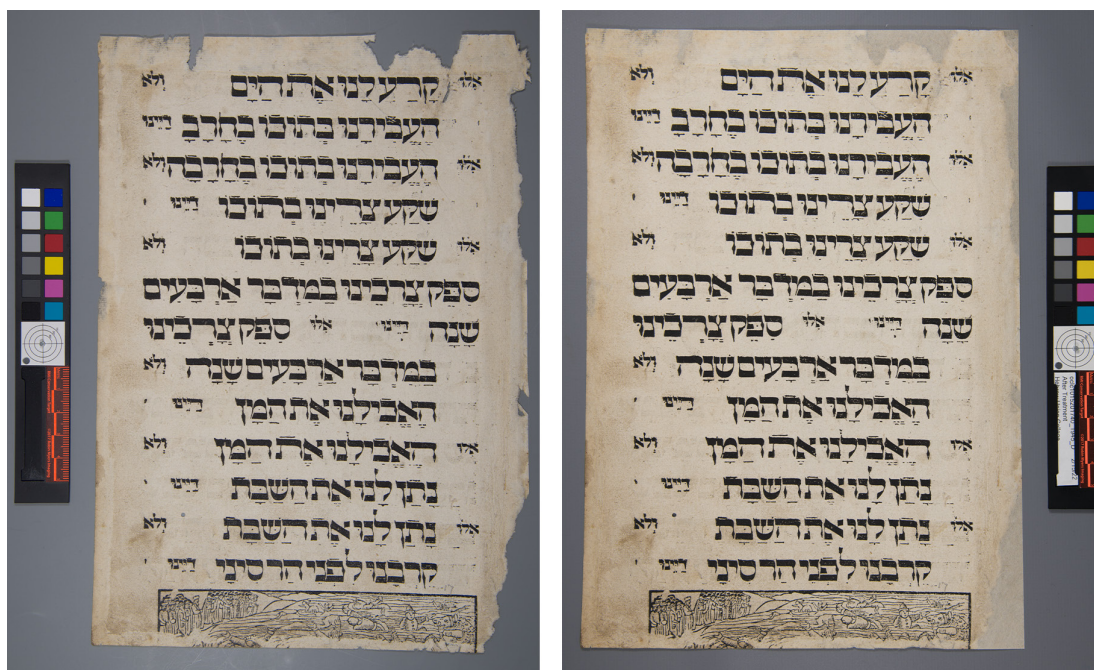 אִלּוּ קָרַע לָנוּ אֶת הַיָּם וְלֹא
הֶעֱבִירָנוּ בְּתוֹכוֹ בֶּחָרָב דַּיֵּינוּ
אִלּוּ הֶעֱבִירָנוּ בְּתוֹכוֹ בֶּחָרָבָה וְלֹא
שִׁקַּע צָרֵינוּ בְּתוֹכוֹ דַּיֵּינוּ
אִלּוּ שִׁקַּע צָרֵינוּ בְּתוֹכוֹ וְלֹא
סִפֵּק צָרְכֵינוּ בַּמִּדְבָּר אַרְבָּעִים
שָׁנָה דַּיֵּינוּ אִלּוּ סִפֵּק צָרְכֵינוּ
בַּמִּדְבָּר אַרְבָּעִים שָׁנָה וְלֹא
הֶאֱכִילָנוּ אֶת הַמָּן דַּיֵּינוּ
אִלּוּ הֶאֱכִילָנוּ אֶת הַמָּן וְלֹא
נָתַן לָנוּ אֶת הַשַּׁבָּת דַּיֵּינוּ
אִלּוּ נָתַן לָנוּ אֶת הַשַּׁבָּת וְלֹא
קֵרְבָנוּ לִפְנֵי הַר סִינַי דַּיֵּינוּ
אִלּוּ קָרַע לָנוּ אֶת הַיָּם וְלֹא
הֶעֱבִירָנוּ בְּתוֹכוֹ בֶּחָרָב דַּיֵּינוּ
אִלּוּ הֶעֱבִירָנוּ בְּתוֹכוֹ בֶּחָרָבָה וְלֹא
שִׁקַּע צָרֵינוּ בְּתוֹכוֹ דַּיֵּינוּ
אִלּוּ שִׁקַּע צָרֵינוּ בְּתוֹכוֹ וְלֹא
סִפֵּק צָרְכֵינוּ בַּמִּדְבָּר אַרְבָּעִים
שָׁנָה דַּיֵּינוּ אִלּוּ סִפֵּק צָרְכֵינוּ
בַּמִּדְבָּר אַרְבָּעִים שָׁנָה וְלֹא
הֶאֱכִילָנוּ אֶת הַמָּן דַּיֵּינוּ
אִלּוּ הֶאֱכִילָנוּ אֶת הַמָּן וְלֹא
נָתַן לָנוּ אֶת הַשַּׁבָּת דַּיֵּינוּ
אִלּוּ נָתַן לָנוּ אֶת הַשַּׁבָּת וְלֹא
קֵרְבָנוּ לִפְנֵי הַר סִינַי דַּיֵּינוּ
After Treatment